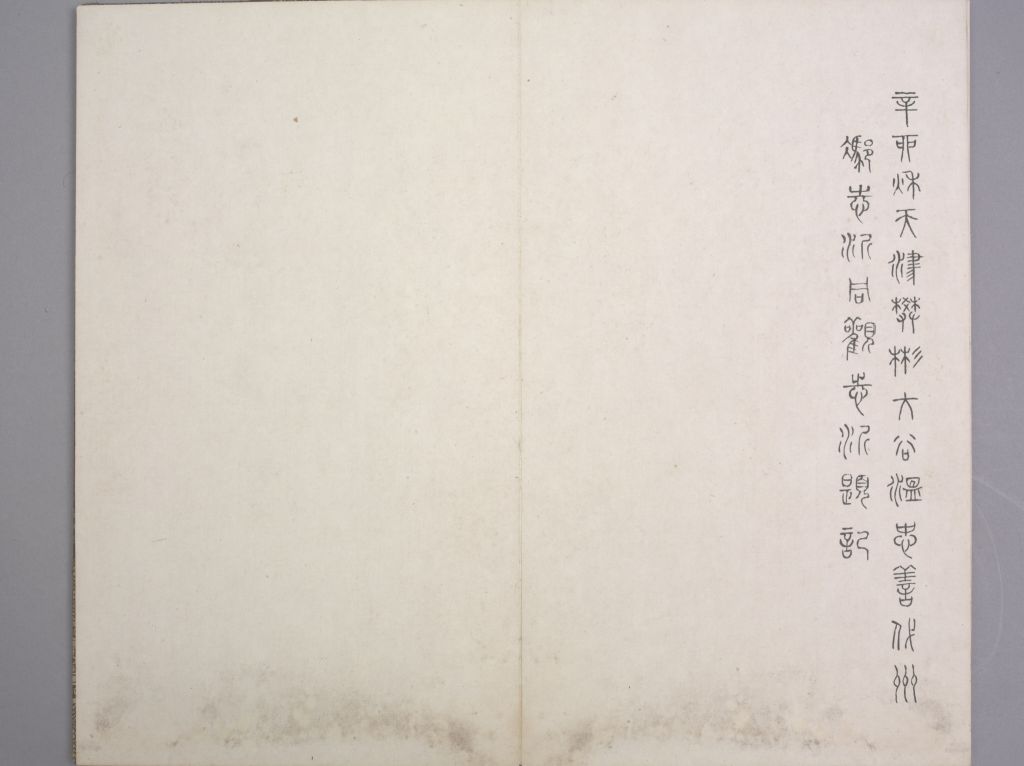 辛丣秌天津樊彬大谷溫忠善代州
馮志沂同觀志沂題記